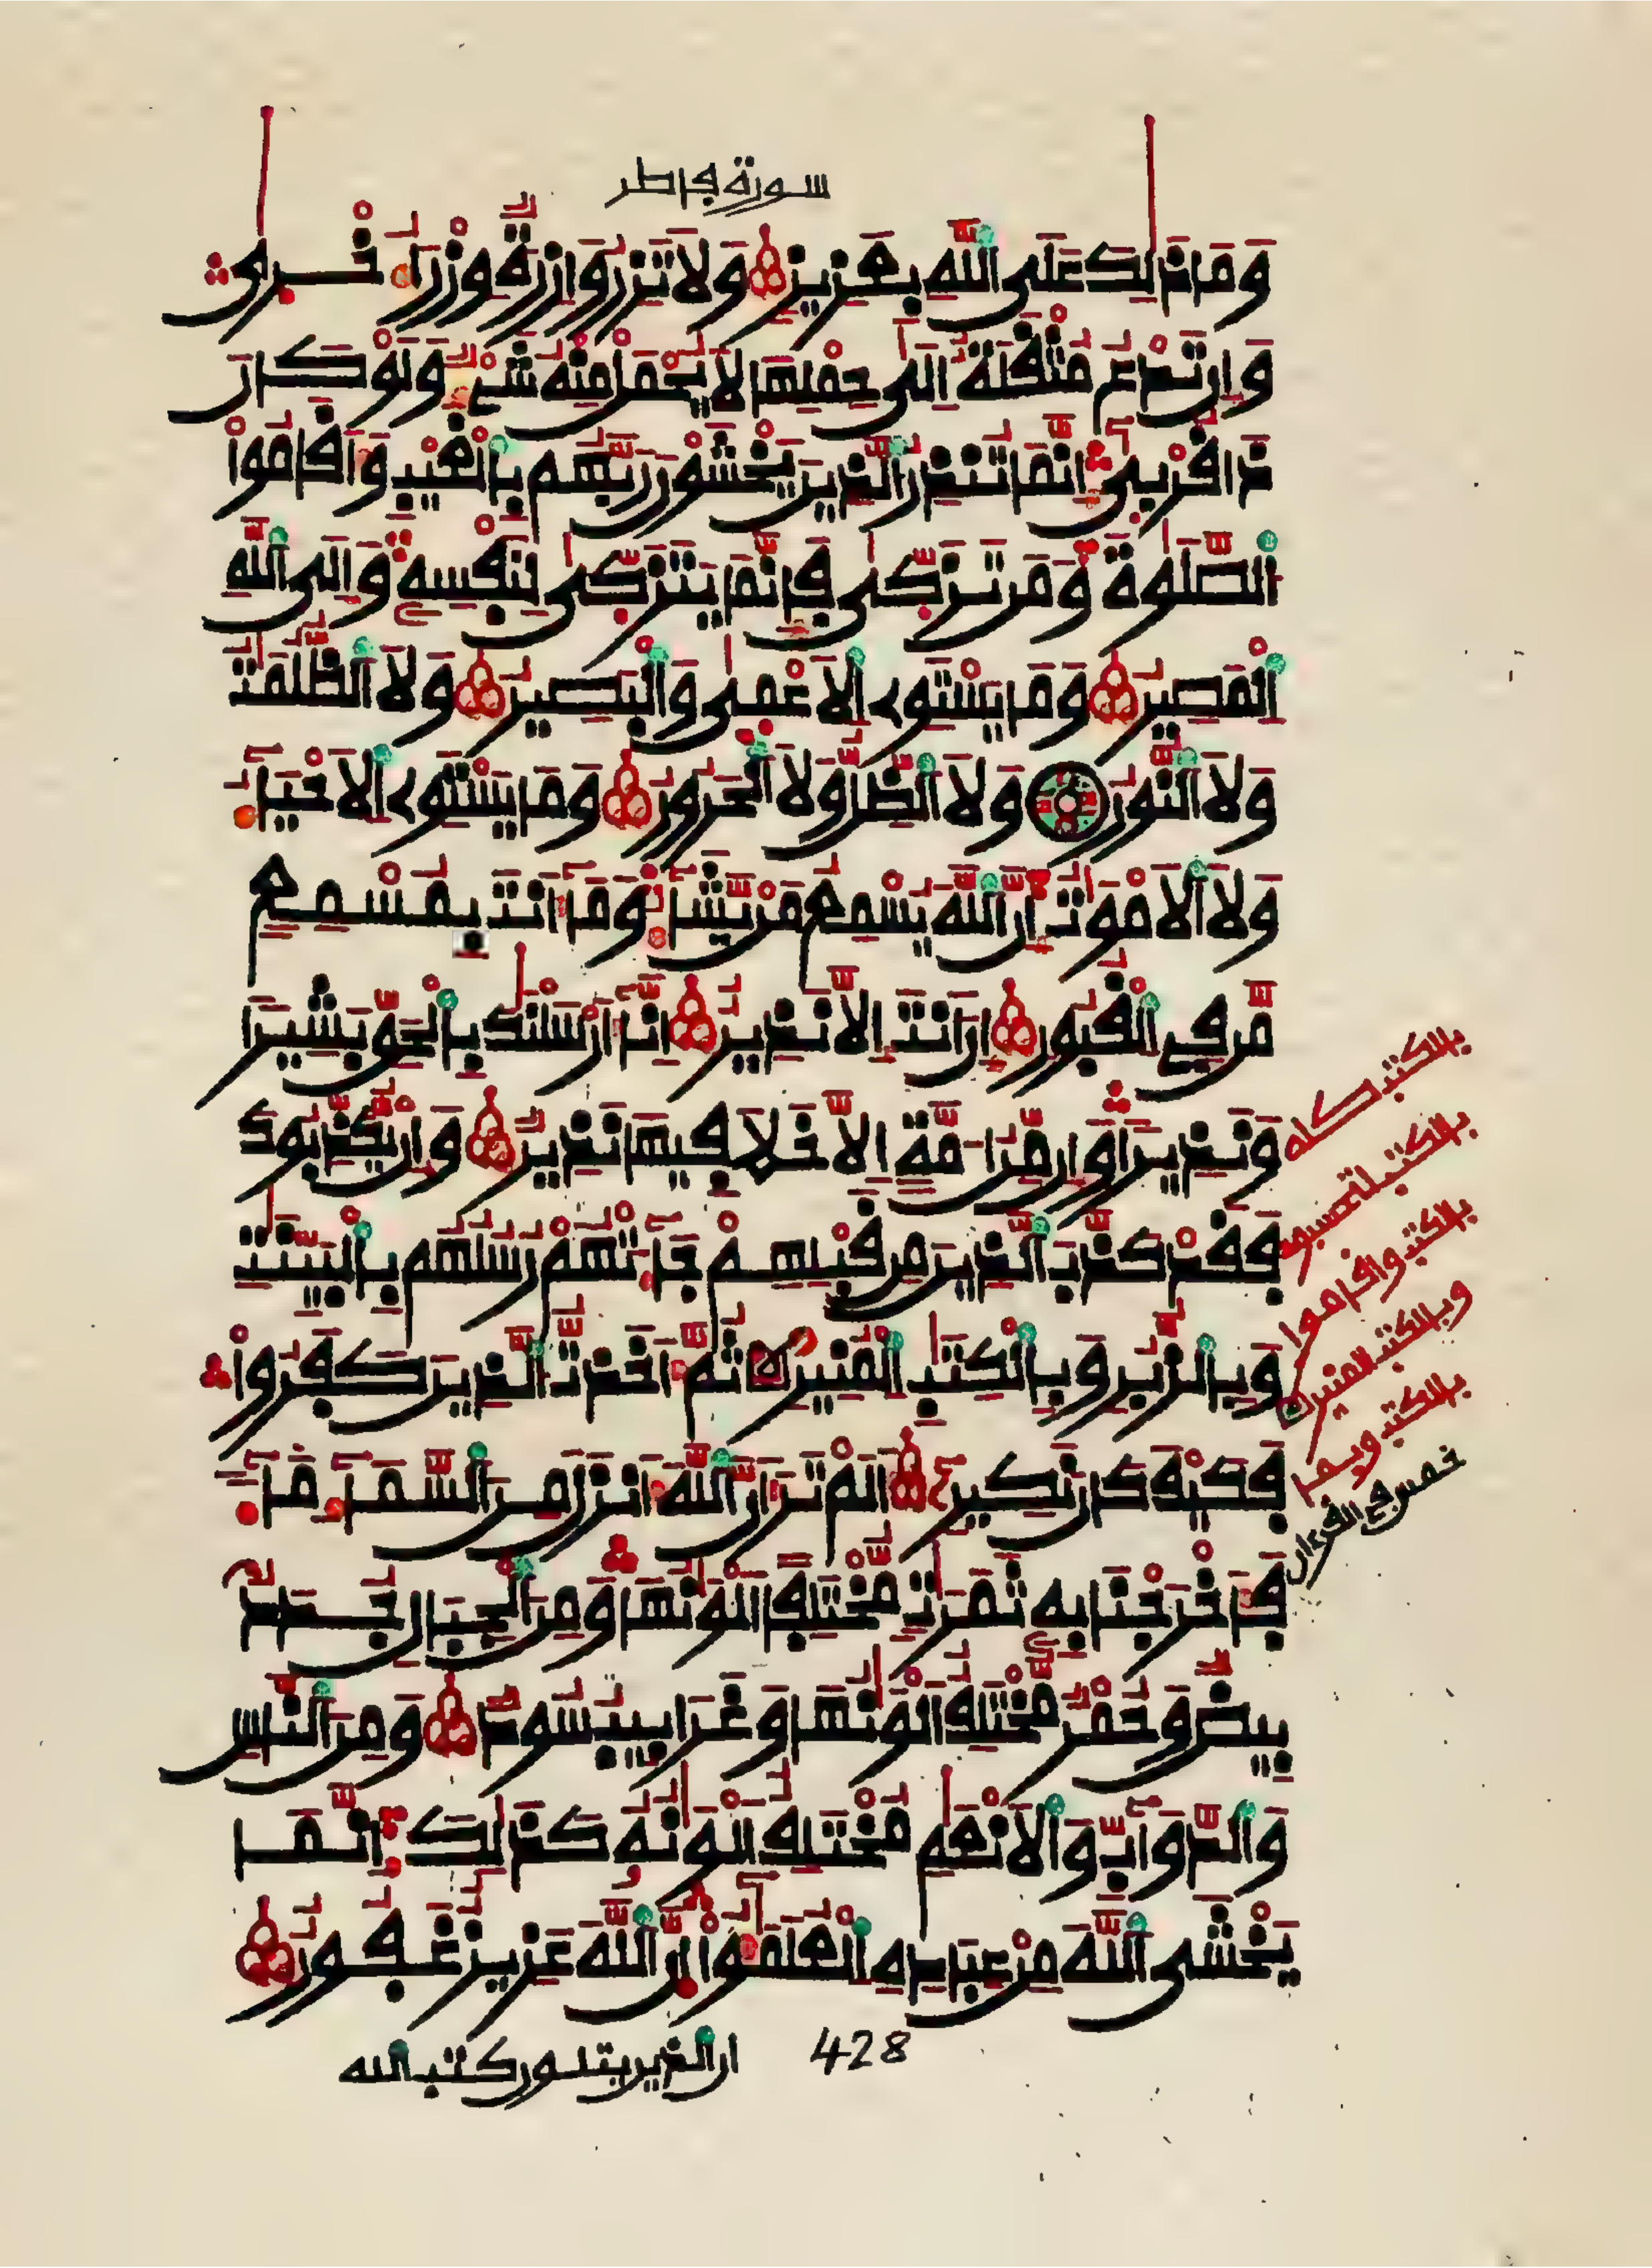 سورة فاطر
وَمَا ذَٰلِكَ عَلَى ٱللَّهِ بِعَزِيزٍ وَلَا تَزِرُ وَازِرَةٌ وِزْرَ أُخْرَىٰ
وَإِن تَدْعُ مُثْقَلَةٌ إِلَىٰ حِمْلِهَا لَا يُحْمَلْ مِنْهُ شَيْءٌ وَلَوْ كَانَ
ذَا قُرْبَىٰ إِنَّمَا تُنذِرُ ٱلَّذِينَ يَخْشَوْنَ رَبَّهُم بِٱلْغَيْبِ وَأَقَامُوا۟
ٱلصَّلَوٰةَ وَمَن تَزَكَّىٰ فَإِنَّمَا يَتَزَكَّىٰ لِنَفْسِهِ وَإِلَى ٱللَّهِ
ٱلْمَصِيرُ وَمَا يَسْتَوِي ٱلْأَعْمَىٰ وَٱلْبَصِيرُ وَلَا ٱلظُّلُمَٰتُ
وَلَا ٱلنُّورُ وَلَا ٱلظِّلُّ وَلَا ٱلْحَرُورُ وَمَا يَسْتَوِي ٱلْأَحْيَآءُ
وَلَا ٱلْأَمْوَٰتُ إِنَّ ٱللَّهَ يُسْمِعُ مَن يَشَآءُ وَمَآ أَنتَ بِمُسْمِعٍ
مَّن فِي ٱلْقُبُورِ إِنْ أَنتَ إِلَّا نَذِيرٌ إِنَّآ أَرْسَلْنَٰكَ بِٱلْحَقِّ بَشِيرًا
وَنَذِيرًا وَإِن مِّنْ أُمَّةٍ إِلَّا خَلَا فِيهَا نَذِيرٌ وَإِن يُكَذِّبُوكَ
فَقَدْ كَذَّبَ ٱلَّذِينَ مِن قَبْلِهِمْ جَآءَتْهُمْ رُسُلُهُم بِٱلْبَيِّنَٰتِ
وَبِٱلزُّبُرِ وَبِٱلْكِتَٰبِ ٱلْمُنِيرِ ثُمَّ أَخَذتُّ ٱلَّذِينَ كَفَرُوا۟
فَكَيْفَ كَانَ نَكِيرِ أَلَمْ تَرَ أَنَّ ٱللَّهَ أَنزَلَ مِنَ ٱلسَّمَآءِ مَآءً
فَأَخْرَجْنَا بِهِ ثَمَرَٰتٍ مُّخْتَلِفًا أَلْوَٰنُهَا وَمِنَ ٱلْجِبَالِ جُدَدٌ
بِيضٌ وَحُمْرٌ مُّخْتَلِفٌ أَلْوَٰنُهَا وَغَرَابِيبُ سُودٌ وَمِنَ ٱلنَّاسِ
وَٱلدَّوَآبِّ وَٱلْأَنْعَٰمِ مُخْتَلِفٌ أَلْوَٰنُهُ كَذَٰلِكَ إِنَّمَا
يَخْشَى ٱللَّهَ مِنْ عِبَادِهِ ٱلْعُلَمَٰٓؤُا۟ إِنَّ ٱللَّهَ عَزِيزٌ غَفُورٌ
بالكتب كله
وبالكتب المنير
خمس في القرءان
428
ان الذين يتلون كتب الله